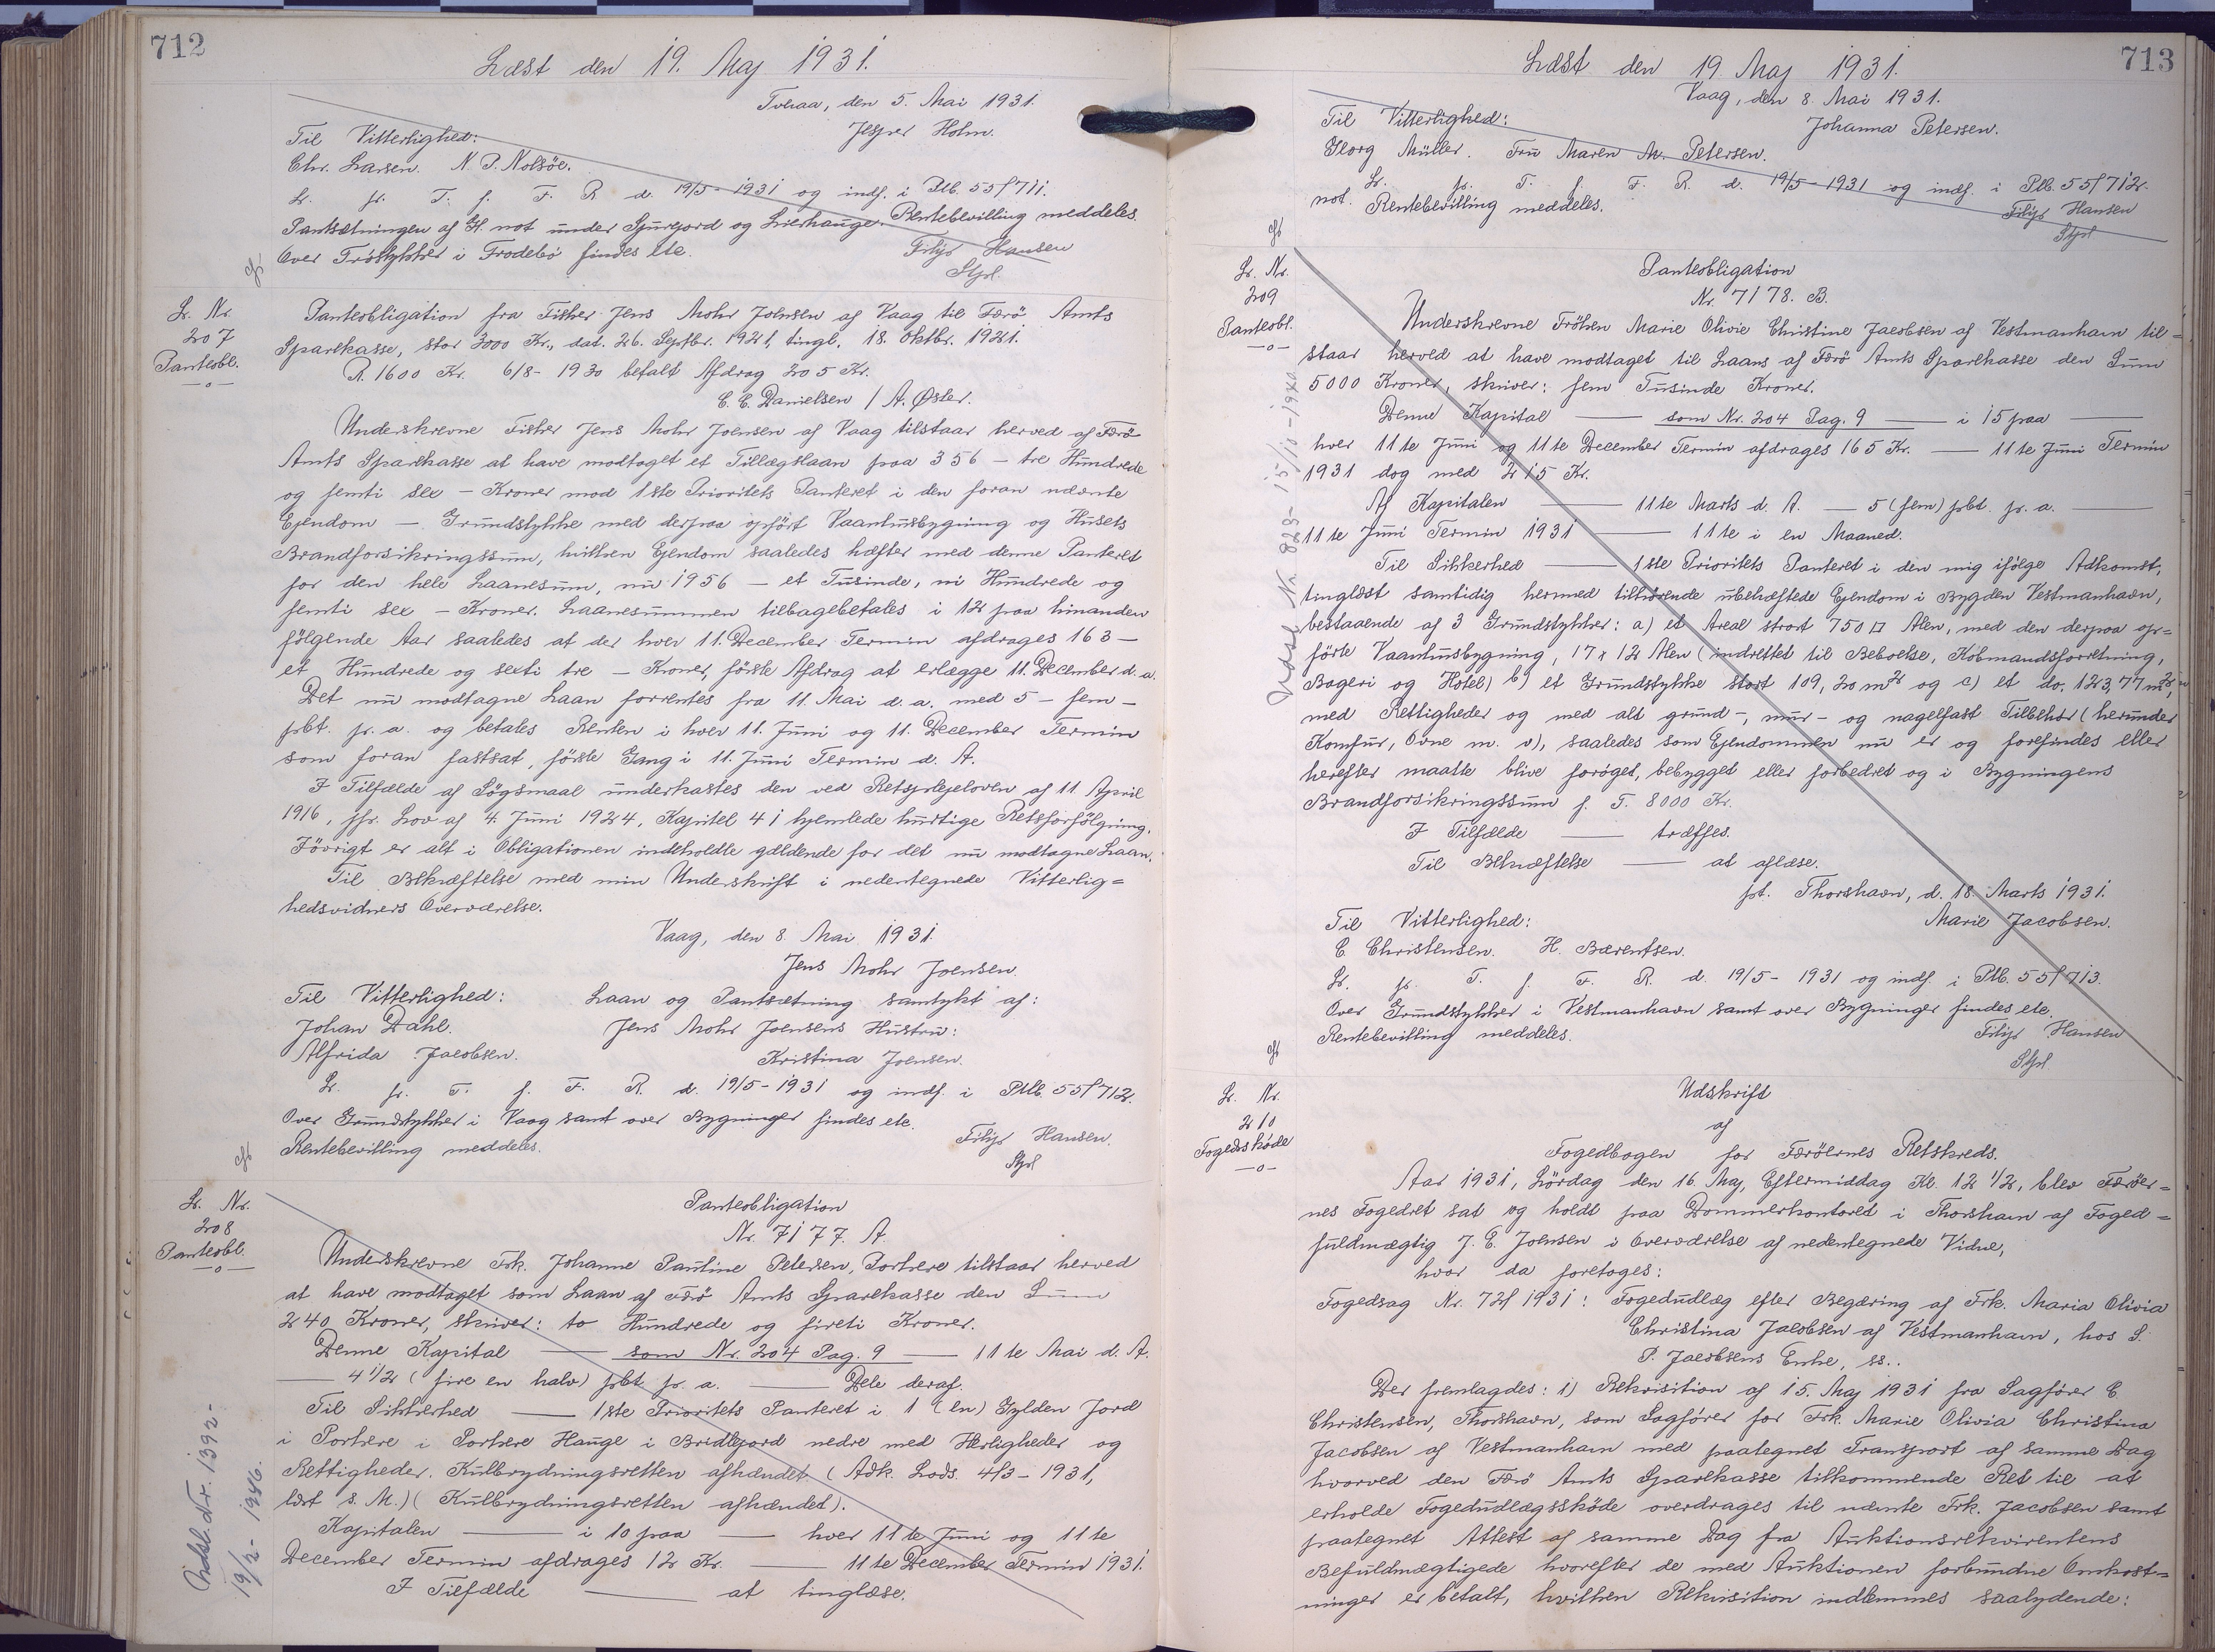 712
Læst den 19. Maj 1931.
Tveraa, den 5. Mai 1931.
Jesper Holm.
Til Vitterlighed:
Chr. Larsen. N. P. Nolsöe.
L. fr. T. f. F. R d. 19/5-1931 og indf. i Ptb. 55f 711.
Pantsætningen af H. not under Sjurgjord og Lierhauge. Rentebevilling meddeles.
Over Tröstykker i Frodebö findes etc.
Filip Hansen
Stpl.
L. Nr.
207
Panteobl.
Panteobligation fra Fisker Jens Mohr Joensen af Vaag til Færö Amts
Sparekasse, stor 3000 Kr., dat. 26. Septbr. 1921, tingl. 18. Oktbr. 1921.
R. 1600 Kr. 6/8-1930 betalt Afdrag 205 Kr.
C. C. Danielsen / A. Øster.
Underskrevne Fisker Jens Mohr Joensen af Vaag tilstaar herved af Færö
Amts Sparekasse at have modtaget et Tillægslaan paa 356 – tre Hundrede
og femti sex – Kroner mod 1ste Prioritets Panteret i den foran nævnte
Ejendom — Grundstykke med derpaa opfört Vaanhusbygning og Husets
Brandforsikringssum, hvilken Ejendom saaledes hæfter med denne Panteret
for den hele Laanesum, nu 1956 — et Tusinde, ni Hundrede og
femti sex – Kroner. Laanesummen tilbagebetales i 12 paa hinanden
fölgende Aar saaledes at der hver 11. December Termin afdrages 163 –
et Hundrede og sexti tre – Kroner, förste Afdrag at erlægge 11. December d. a.
Det nu modtagne Laan forrentes fra 11. Mai d. a. med 5 – fem –
pCt. pr. a. og betales Renten i hver 11. Juni og 11. December Termin
som foran fastsat, förste Gang i 11. Juni Termin d. A.
I Tilfælde af Sögsmaal underkastes den ved Retsplejeloven af 11 April
1916, jfr. Lov af 4. Juni 1924, Kapitel 41 hjemlede hurtige Retsforfölgning.
Iövrigt er alt i Obligationen indeholdte gældende for det nu modtagne Laan.
Til Bekræftelse med min Underskrift i nedentegnede Vitterlig=
hedsvidners Overværelse.
Vaag, den 8. Mai 1931.
Jens Mohr Joensen.
Til Vitterlighed: Laan og Pantsætning samtykt af:
Johan Dahl. Jens Mohr Joensens Hustru:
Alfrida Jacobsen. Kristina Joensen.
L. fr. T. f. F. R. d. 19/5-1931 og indf. i Ptb. 55f 712.
Over Grundstykker i Vaag samt over Bygninger findes etc.
Rentebevilling meddeles.
Filip Hansen.
Stpl
L. Nr.
208
Panteobl.
Panteobligation
Nr. 7177. A.
Underskrevne Frk. Johanne Pauline Petersen, Porkere tilstaar herved
at have modtaget som Laan af Færö Amts Sparekasse den Sum
240 Kroner, skriver: to Hundrede og fireti Kroner.
Denne Kapital — som Nr. 204 Pag. 9 — 11te Mai d. A.
— 4 1/2 (fire en halv) pCt pr. a. — Dele deraf.
Til Sikkerhed — 1ste Prioritets Panteret i 1 (en) Gylden Jord
i Porkere i Porkere Hauge i Bridlegord nedre med Herligheder og
Rettigheder. Kulbrydningsretten afhændet. (Adk. Lods. 4/3-1931,
læst s. M.) (Kulbrydningsretten afhændet).
Kapitalen — i 10 paa — hver 11te Juni og 11te
December Termin afdrages 12 Kr. — 11te December Termin 1931.
I Tilfælde — at tinglæse.
Udsl. Nr. 1392-
19/2- 1946.
713
Læst den 19 Maj 1931.
Vaag, den 8. Mai 1931.
Til Vitterlighed:
Johanna Petersen.
Georg Müller. Fru Maren M. Petersen.
L. fr. T. f. F. R. d. 19/5-1931 og indf. i Ptb. 55f 712.
not. Rentebevilling meddeles.
Filip Hansen
Stpl
L. Nr.
209
Panteobl.
Panteobligation
Nr. 7178. B.
Underskrevne Fröken Marie Olivie Christine Jacobsen af Vestmanhavn til=
staar herved at have modtaget til Laans af Færö Amts Sparekasse den Sum
5000 Kroner, skriver: fem Tusinde Kroner.
Denne Kapital — som Nr. 204 Pag. 9 — i 15 paa —
hver 11te Juni og 11te December Termin afdrages 165 Kr. — 11te Juni Termin
1931 dog med 215 Kr.
Af Kapitalen — 11te Marts d. A. — 5 (fem) pCt. pr. a. —
11te Juni Termin 1931 — 11te i en Maaned.
Til Sikkerhed — 1ste Prioritets Panteret i den mig ifölge Adkomst,
tinglæst samtidig hermed tilhörende ubehæftede Ejendom i Bygden Vestmanhavn,
bestaaende af 3 Grundstykker: a) et Areal stort 750 □ Alen, med den derpaa op=
förte Vaanhusbygning, 17 x 12 Alen (indrettet til Beboelse, Köbmandsforretning,
Bageri og Hotel) b) et Grundstykke stort 109,20 m2 og c) et do. 123,77 m2,
med Rettigheder og med alt grund-, mur- og nagelfast Tilbehör (herunder
Komfur, Ovne m. v), saaledes som Ejendommen nu er og forefindes eller
herefter maatte blive foröget, bebygget eller forbedret og i Bygningens
Brandforsikringssum f. T. 8000 Kr.
I Tilfælde — træffes.
Til Bekræftelse — at aflæse.
pt. Thorshavn, d. 18. Marts 1931.
Til Vitterlighed:
Marie Jacobsen.
C Christensen. H. Bærentsen.
L. fr. T. f. F. R. d. 19/5-1931 og indf. i Ptb. 55f 713.
Over Grundstykker i Vestmanhavn samt over Bygninger findes etc.
Rentebevilling meddeles.
Filip Hansen
Stpl
Udsl. Nr. 828- 15/10-1940
L. Nr.
210
Fogedskøde
Udskrift
af
Fogedbogen for Færöernes Retskreds.
Aar 1931, Lördag den 16. Maj, Eftermiddag Kl. 12 1/2, blev Færöer=
nes Fogedret sat og holdt paa Dommerkontoret i Thorshavn af Foged=
fuldmægtig J. E. Joensen i Overværelse af nedentegnede Vidne,
hvor da foretoges:
Fogedsag Nr. 72f 1931: Fogedudlæg efter Begæring af Frk. Maria Olivia
Christina Jacobsen af Vestmanhavn, hos S.
P. Jacobsens Enke, ss..
Der fremlagdes: 1) Rekvisition af 15. Maj 1931 fra Sagförer C
Christensen, Thorshavn, som Sagförer for Frk. Marie Olivia Christina
Jacobsen af Vestmanhavn med paategnet Transport af samme Dag
hvorved den Færö Amts Sparekasse tilkommende Ret til at
erholde Fogedudlægsskøde overdrages til nævnte Frk. Jacobsen samt
paategnet Attest af samme Dag fra Auktionsrekvirentens
Befuldmægtigede hvorefter de med Auktionen forbundne Omkost=
ninger er betalt, hvilken Rekvisition indlemmes saalydende: